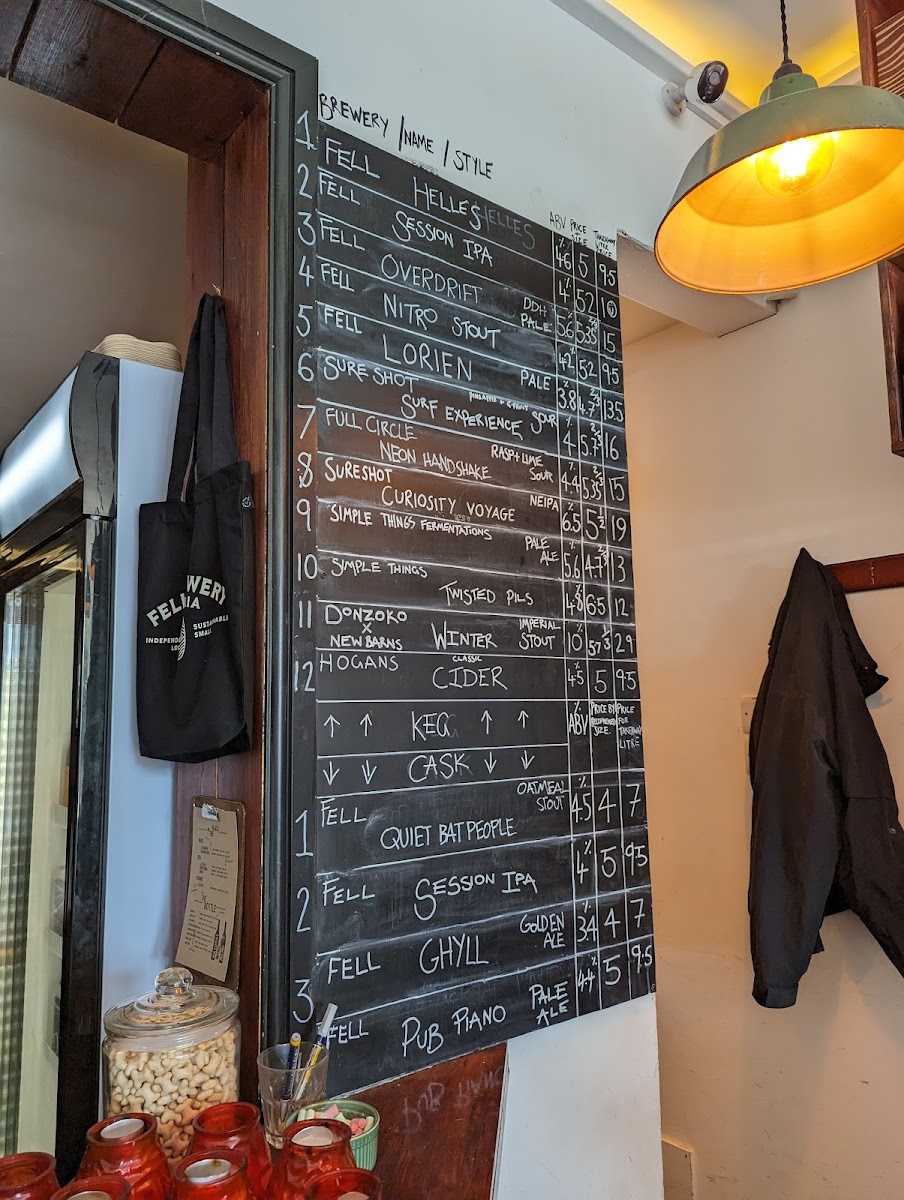 BREWERY / NAME / STYLE
ABV PRICE
1 FELL HELLES HELLES 4.6% 5 9.5
2 FELL SESSION IPA 4% 5.2 10
3 FELL OVERDRIFT DDH PALE 5.6 5.35 2/3 15
4 FELL NITRO STOUT 4.2% 5.2 9.5
5 FELL LORIEN PALE 3.8% 4.7 13.5
6 SURE SHOT SURF EXPERIENCE SOUR 4% 5.7 2/3 16
7 FULL CIRCLE NEON HANDSHAKE RASP + LIME SOUR 4.4% 5.35 2/3 15
8 SURESHOT CURIOSITY VOYAGE NEIPA 6.5% 5 1/2 19
9 SIMPLE THINGS FERMENTATIONS PALE ALE 5.6% 4.7 2/3 13
10 SIMPLE THINGS TWISTED PILS 4.8% 6.5 12
11 DONZOKO X NEW BARNS WINTER IMPERIAL STOUT 10% 5.7 1/3 29
12 HOGANS CLASSIC CIDER 4.5% 5 9.5
↑ ↑ KEG ↑ ↑ % ABV PRICE BY RECOMMENDED SIZE. PRICE FOR TAKEAWAY LITRE
↓ ↓ CASK ↓ ↓
FELL QUIET BAT PEOPLE OATMEAL STOUT 4.5% 4 7
1 FELL SESSION IPA 4% 5 9.5
2 FELL GHYLL GOLDEN ALE 3.4 4 7
3 FELL PUB PIANO PALE ALE 4.4% 5 9.5
FELL
WERY
RIA
INDEPENDE
SUSTAINABLE
SMALL
LO
BOTTLE